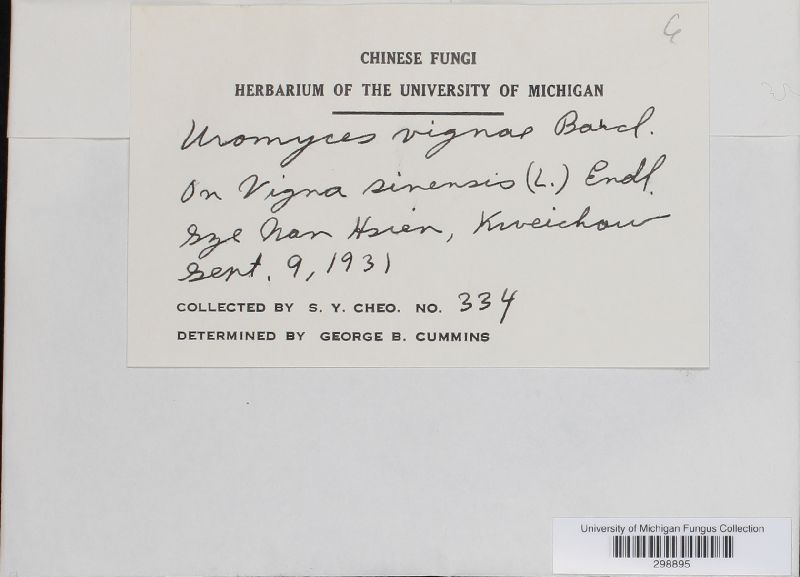 CHINESE FUNGI
HERBARIUM OF THE UNIVERSITY OF MICHIGAN
Uromyces vignae Barcl.
On Vigna sinensis (L.) Endl.
Sze Nan Hsien, Kweichow
Sept. 9, 1931
COLLECTED BY S. Y. CHEO. NO. 334
DETERMINED BY GEORGE B. CUMMINS
University of Michigan Fungus Collection
298895